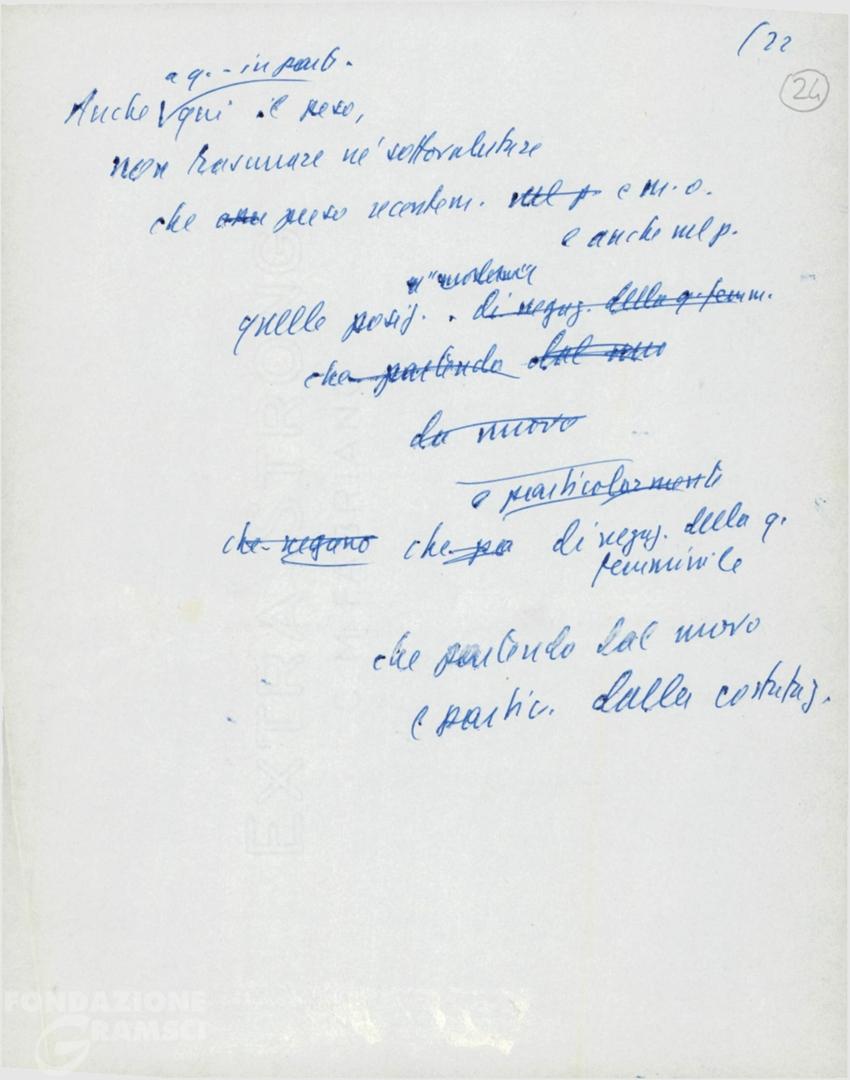 (22
24
a q. - in part.
Anche qui il peso,
non trascurare né sottovalutare
che peso recentem. nel p. e m.o.
e anche nel p.
"moderna"
quelle posiz. . di negaz. della q. femm.
che partendo dal nuo
da nuovo
e particolarmente
che negano che pa di negaz. della q.
femminile
che partendo dal nuovo
e partic. dalla
EXTRA STRONG
FONDAZIONE
GRAMSCI